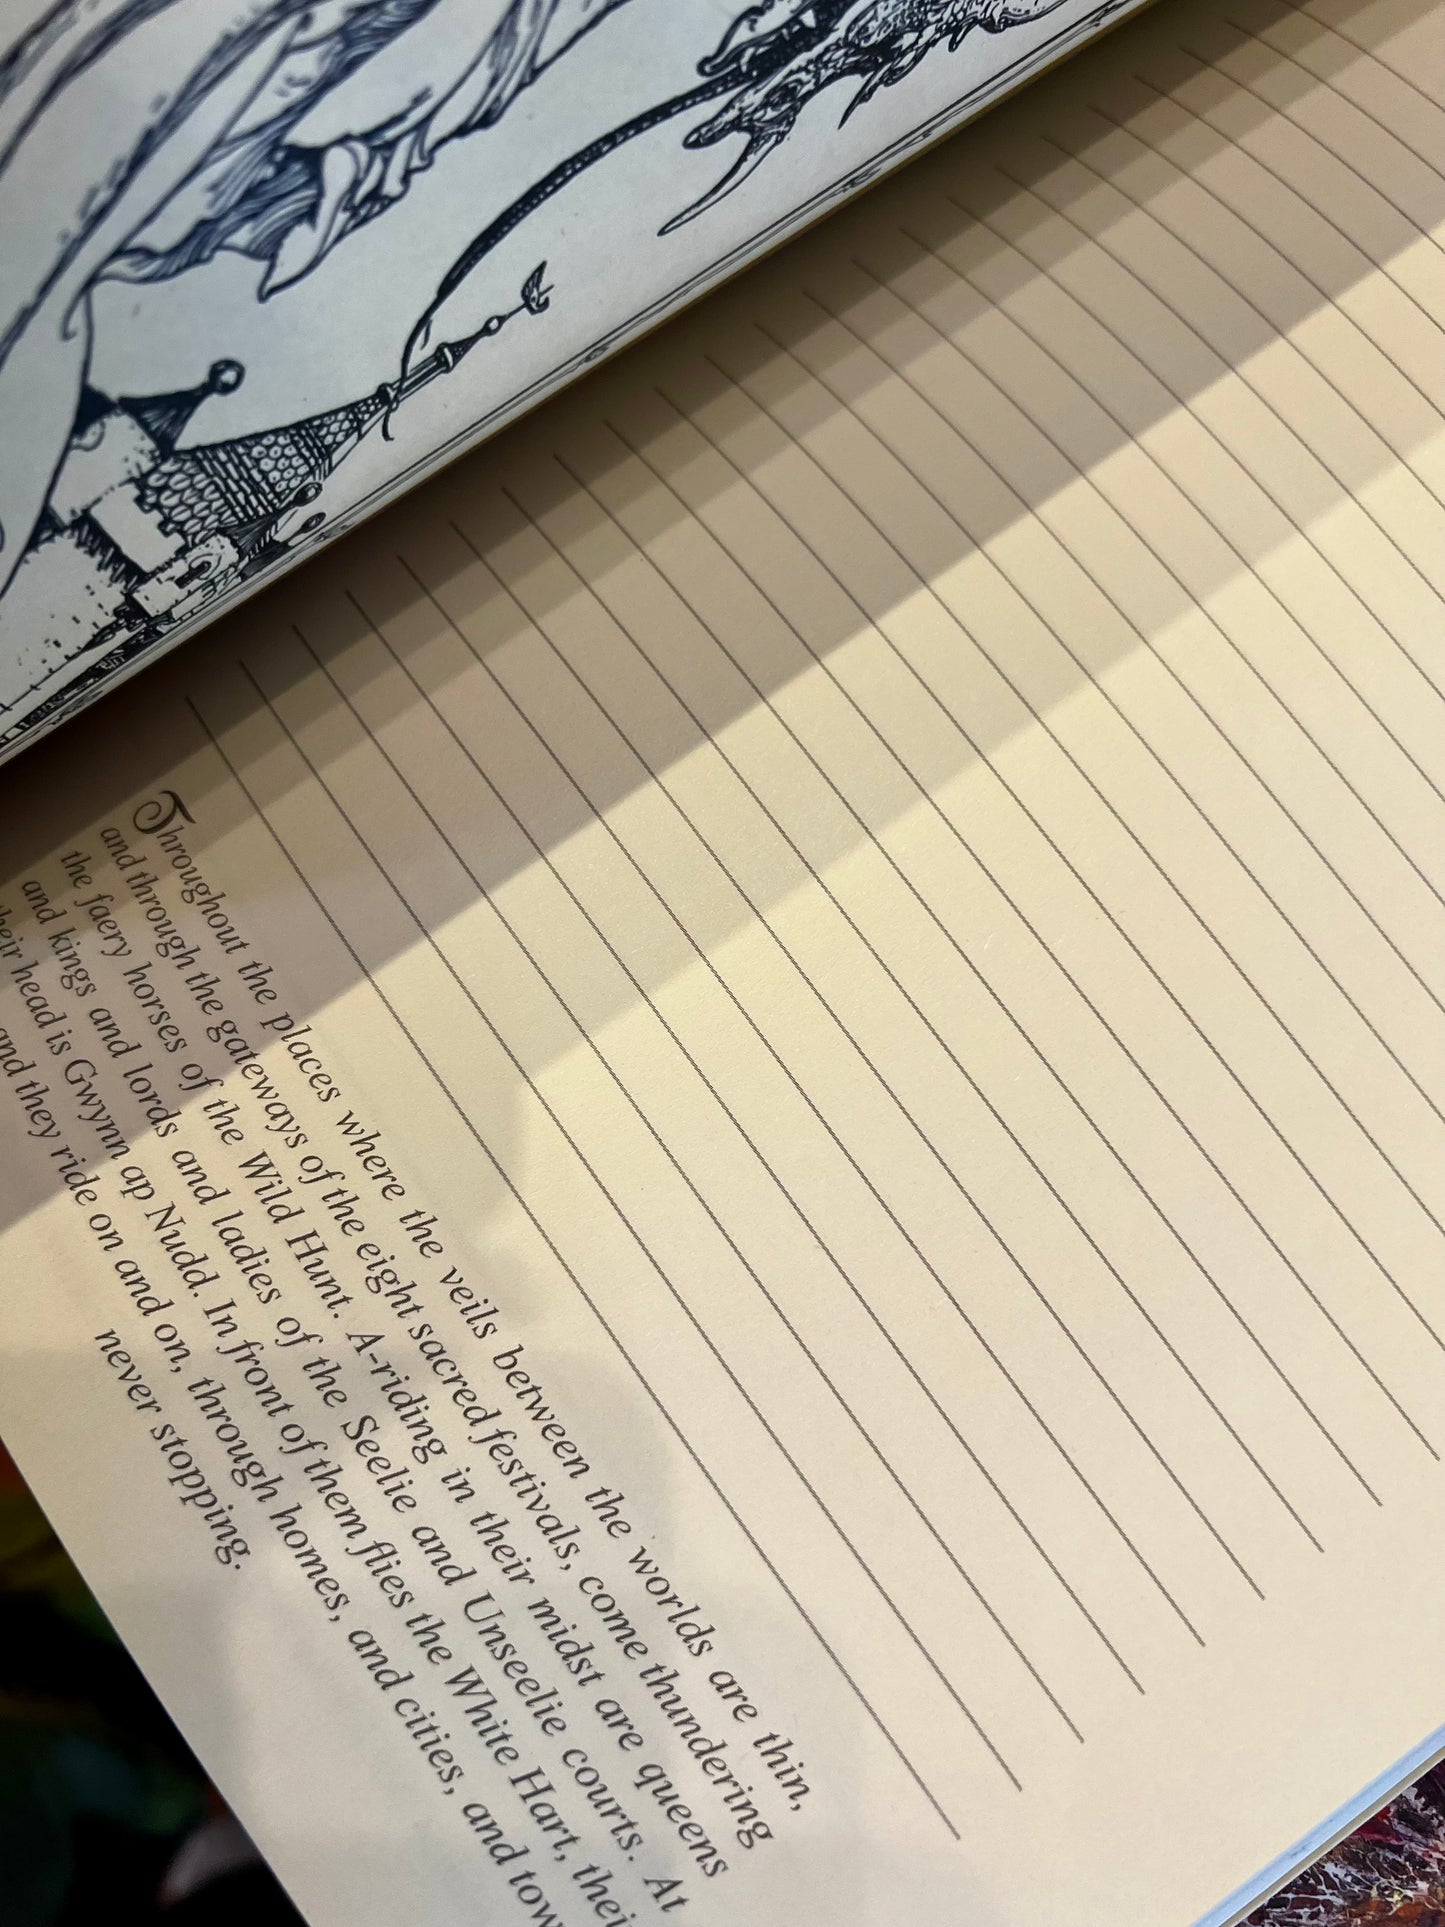 Throughout the places where the veils between the worlds are thin,
and through the gateways of the eight sacred festivals, come thundering
the faery horses of the Wild Hunt. A-riding in their midst are queens
and kings and lords and ladies of the Seelie and Unseelie courts. At
their head is Gwynn ap Nudd. In front of them flies the White Hart, thei
and they ride on and on, through homes, and cities, and tow
never stopping.